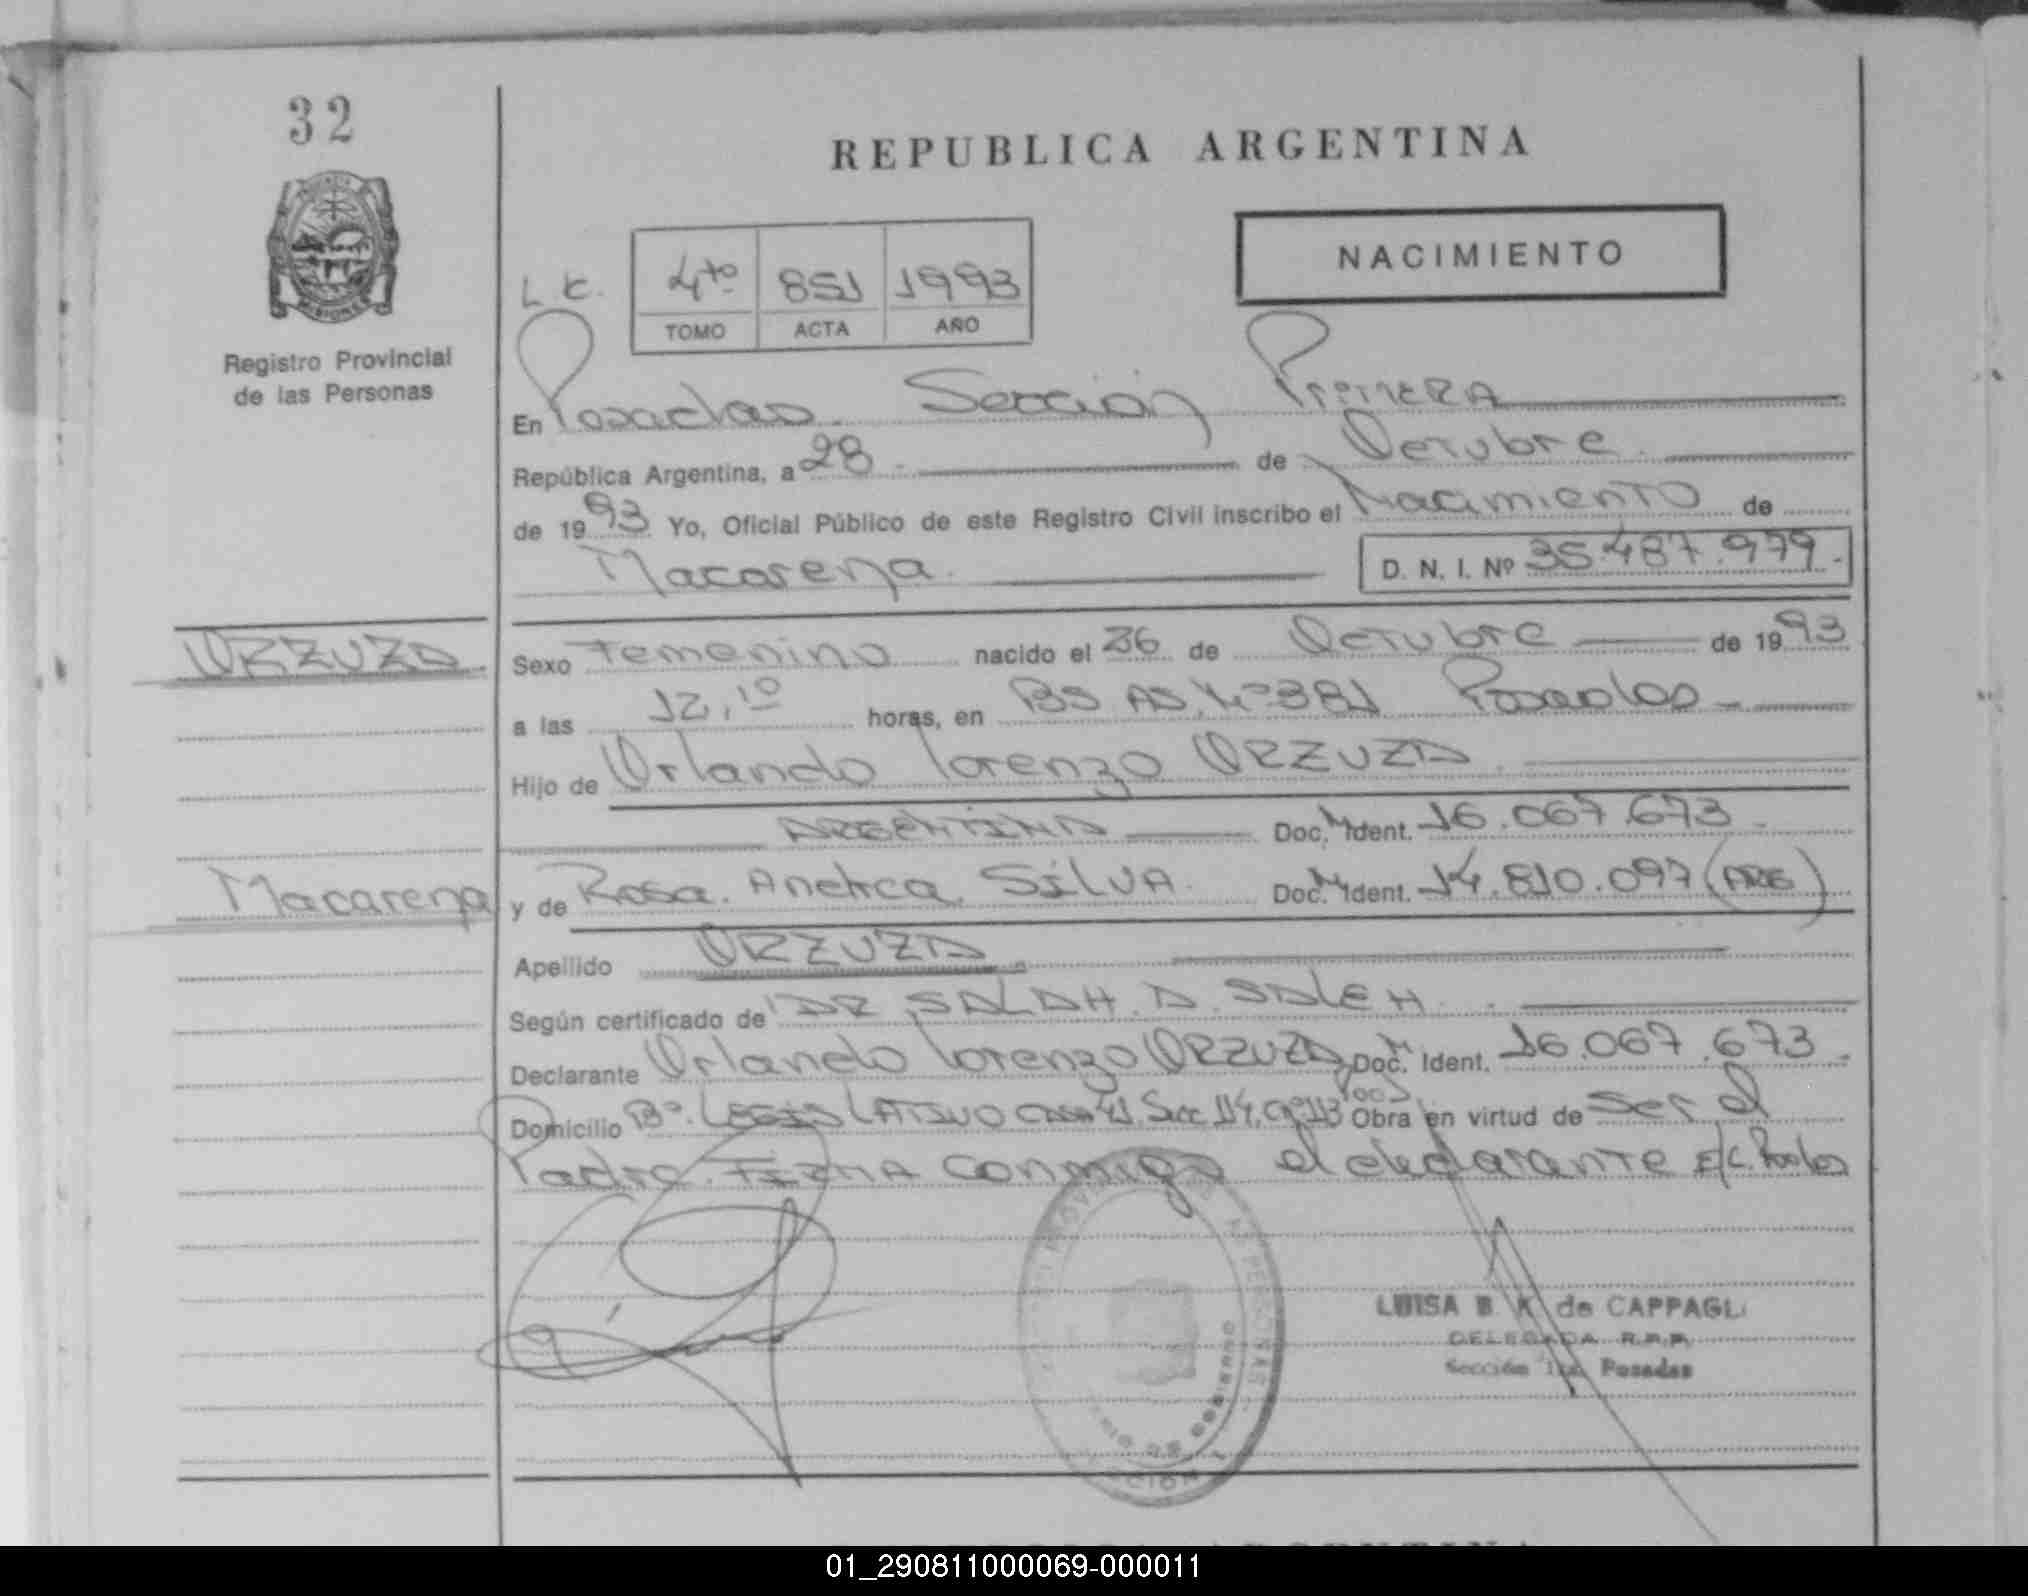 32
REPUBLICA ARGENTINA
NACIMIENTO
MISIONES
Registro Provincial
de las Personas
4to 851 1993
TOMO ACTA AÑO
En Posadas Sección Primera
República Argentina, a 28 de Octubre
de 1993 Yo, Oficial Público de este Registro Civil inscribo el Nacimiento de
Macarena D. N. I. Nº 35.487.979.-
URZUZA
Sexo Femenino nacido el 26 de Octubre de 1993
a las 12,10 horas, en BS AS. Nº 381 Posadas
Hijo de Orlando Lorenzo URZUZA
ARGENTINA Doc. M. Ident. 16.067.673
Macarena
y de Rosa. Andrea. SILVA. Doc. M. Ident. 14.810.097 (ARG)
Apellido URZUZA
Según certificado de DR SALAH. A. SALEH
Declarante Orlando Lorenzo URZUZA Doc. M Ident. 16.067.673.
Domicilio Bº. LEGISLATIVO CASA 41, Secc 114, Obra en virtud de ser el
Padre. FIRMA conmigo el declarante
LUISA B. K de CAPPAGLI
DELEGADA R.P.P.
Sección 1ra. Posadas
01_290811000069-000011